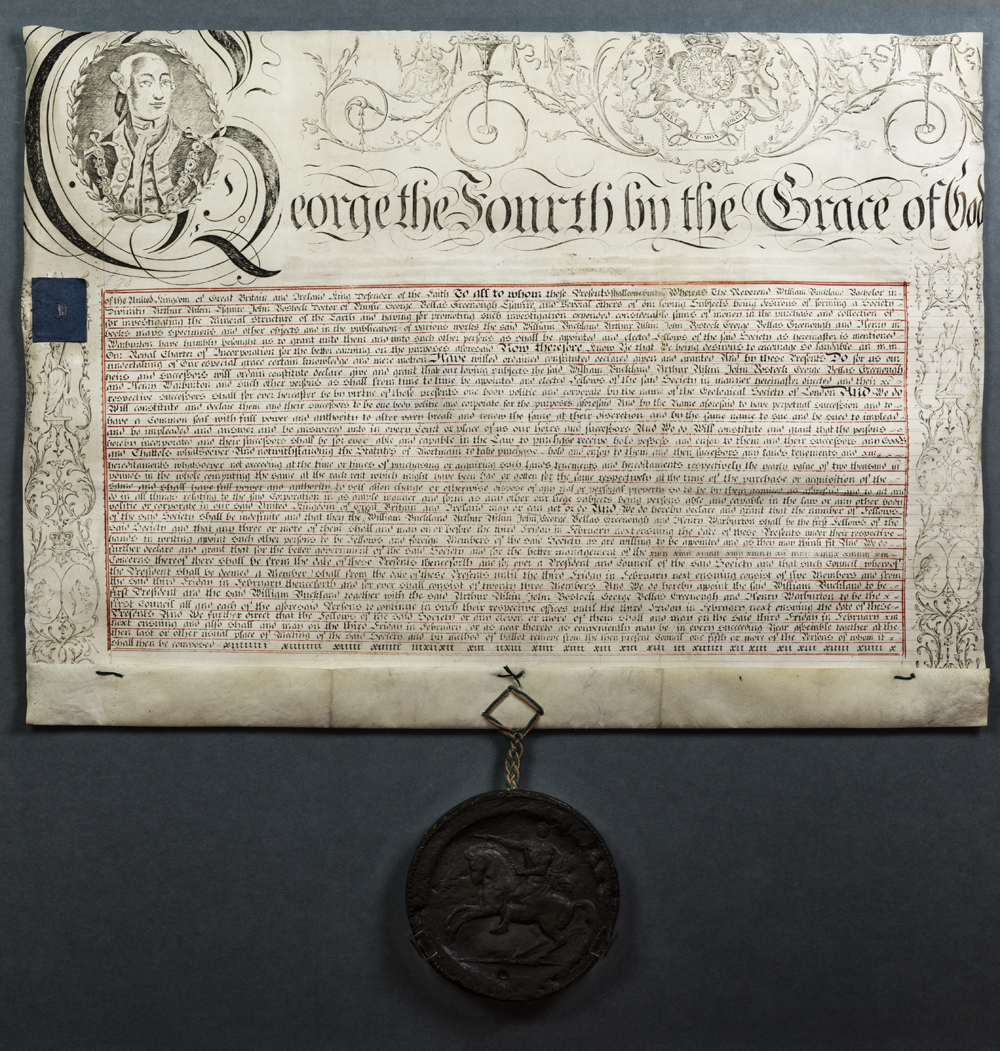 DIEU ET MON DROIT
George the Fourth by the Grace of God
of the United Kingdom of Great Britain and Ireland King Defender of the Faith To all to whom these Presents shall come Greeting Whereas The Reverend William Buckland Bachelor in
Divinity Arthur Aikin Esquire John Bostock Doctor of Physic George Bellas Greenough Esquire and Several others of our loving Subjects being desirous of forming a Society
for investigating the Mineral Structure of the Earth and having for promoting such investigation expended considerable sums of money in the purchase and collection of
books maps specimens and other objects and in the publication of various works the said William Buckland Arthur Aikin John Bostock George Bellas Greenough and Henry
Warburton have humbly besought us to grant unto them and unto such other persons as shall be appointed and elected Fellows of the said Society as hereinafter is mentioned
Our Royal Charter of Incorporation for the better carrying on the purposes aforesaid Now therefore Know Ye that We being desirous to encourage so laudable an
undertaking of Our especial grace certain knowledge and mere motion Have willed ordained constituted declared given and granted And by these Presents Do for us our
heirs and successors will ordain constitute declare give and grant that our loving subjects the said William Buckland Arthur Aikin John Bostock George Bellas Greenough
and Henry Warburton and such other persons as shall from time to time be appointed and elected Fellows of the said Society in manner hereinafter directed and their
respective successors shall for ever hereafter be by virtue of these presents one body politic and corporate by the name of the Geological Society of London And We do
Will constitute and declare them and their successors to be one body politic and corporate for the purposes aforesaid And by the Name aforesaid to have perpetual succession and to
have a Common Seal with full power and authority to alter vary break and renew the same at their discretion and by the same name to sue and be sued to implead
and be impleaded and answer and be answered unto in every Court or place of us our heirs and successors And We do Will constitute and grant that the persons
hereby incorporate and their successors shall be for ever able and capable in the Law to purchase receive hold possess and enjoy to them and their successors any Goods
and Chattels whatsoever And notwithstanding the Statutes of Mortmain to take purchase hold and enjoy to them and their successors any lands tenements and
hereditaments whatsoever not exceeding at the time or times of purchasing or acquiring such lands tenements and hereditaments respectively the yearly value of two thousand
pounds in the whole computing the same at the rack rent which might have been had or gotten for the same respectively at the time of the purchase or acquisition of the
same and shall have full power and authority to sell alien charge or otherwise dispose of any real or personal property so to be by them acquired as aforesaid and to act and
do in all things relating to the said Corporation in as ample manner and form as any other our liege subjects being persons able and capable in the law or any other body
politic or corporate in our said United Kingdom of Great Britain and Ireland may or can act or do And We do hereby declare and grant that the number of Fellows
of the said Society shall be indefinite and that they the William Buckland Arthur Aikin John George Bellas Greenough and Henry Warburton shall be the first Fellows of the
said Society and that any three or more of them shall and may on or before the third Friday in February next ensuing the date of these Presents under their respective
hands in writing appoint such other persons to be Fellows and foreign Members of the said Society as are willing to be appointed and as they may think fit And We do
further declare and grant that for the better government of the said Society and for the better management of the
Concerns thereof there shall be from the date of these Presents thenceforth and for ever a President and Council of the said Society and that such Council whereof
the President shall be deemed a Member shall from the date of these Presents until the third Friday in February next ensuing consist of five Members and from
the said third Friday in February thenceforth and for ever shall consist of twenty three Members And We do hereby appoint the said William Buckland to be
first President and the said William Buckland together with the said Arthur Aikin John Bostock George Bellas Greenough and Henry Warburton to be the
first Council all and each of the aforesaid Persons to continue in such their respective offices until the third Friday in February next ensuing the date of these
Presents And We further direct that the Fellows of the said Society or any eleven or more of them shall and may on the said third Friday in February
next ensuing and also shall and may on the third Friday of February or as near thereto as conveniently may be in every succeeding Year assemble together at the
then last or other usual place of Meeting of the said Society and by method of ballot remove from the then present Council one fifth or more of the Persons of whom it
shall then be composed